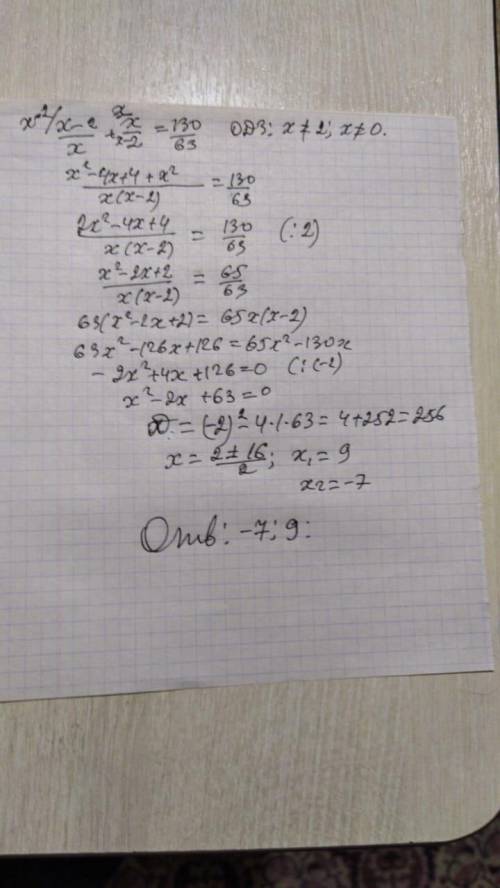 x-2/ (x-2)/x + x/ x/(x-2) = 130/63 ОДЗ: x ≠ 2; x ≠ 0.
(x²-4x+4+x²)/(x(x-2)) = 130/63
(2x²-4x+4)/(x(x-2)) = 130/63 (:2)
(x²-2x+2)/(x(x-2)) = 65/63
63(x²-2x+2) = 65x(x-2)
63x²-126x+126 = 65x²-130x
-2x²+4x+126=0 (:(-2)
x²-2x+63=0
D = (-2)²-4·1·63 = 4+252 = 256
x = (2±16)/2; x₁ = 9
x₂ = -7
Отв: -7; 9: